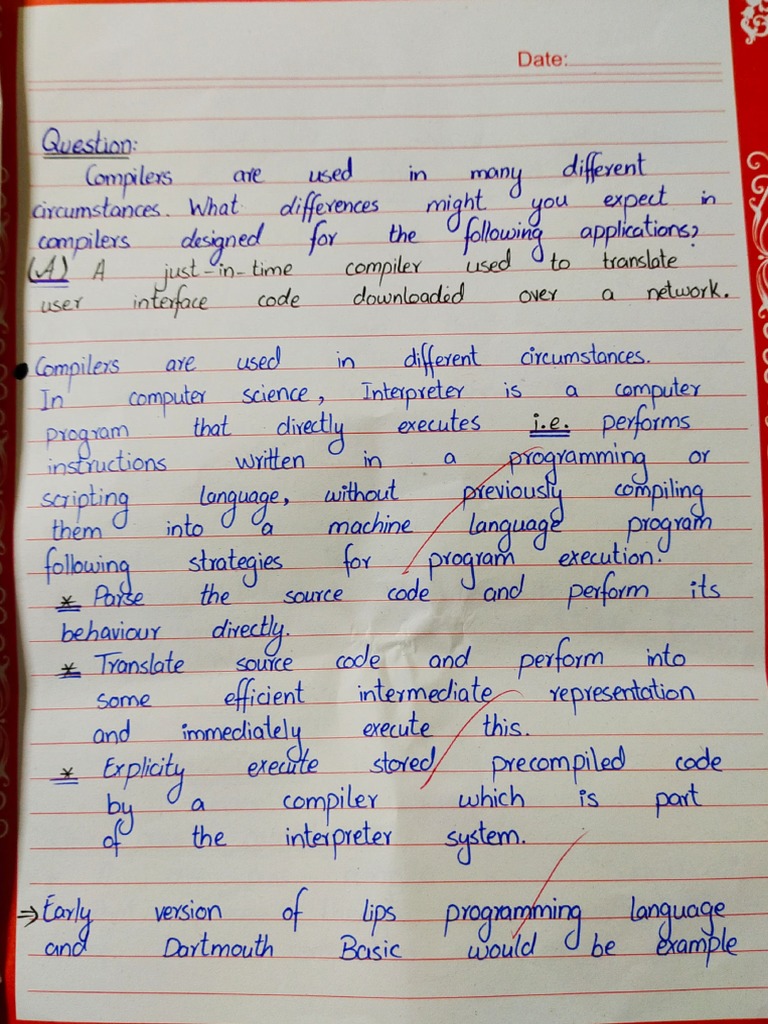 Date:
Question:
Compilers are used in many different
circumstances. What differences might you expect in
compilers designed for the following applications?
(A) A just-in-time compiler used to translate
user interface code downloaded over a network.
• Compilers are used in different circumstances.
In computer science, Interpreter is a computer
program that directly executes i.e. performs
instructions written in a programming or
scripting language, without previously compiling
them into a machine language program
following strategies for program execution.
* Parse the source code and perform its
behaviour directly.
* Translate source code and perform into
some efficient intermediate representation
and immediately execute this.
* Explicity execute stored precompiled code
by a compiler which is part
of the interpreter system.
⇒ Early version of lips programming language
and Dartmouth Basic would be example